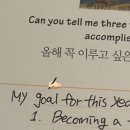 Can you tell me three
accomplis
올해 꼭 이루고 싶은
My goal for this yea
1. Becoming a